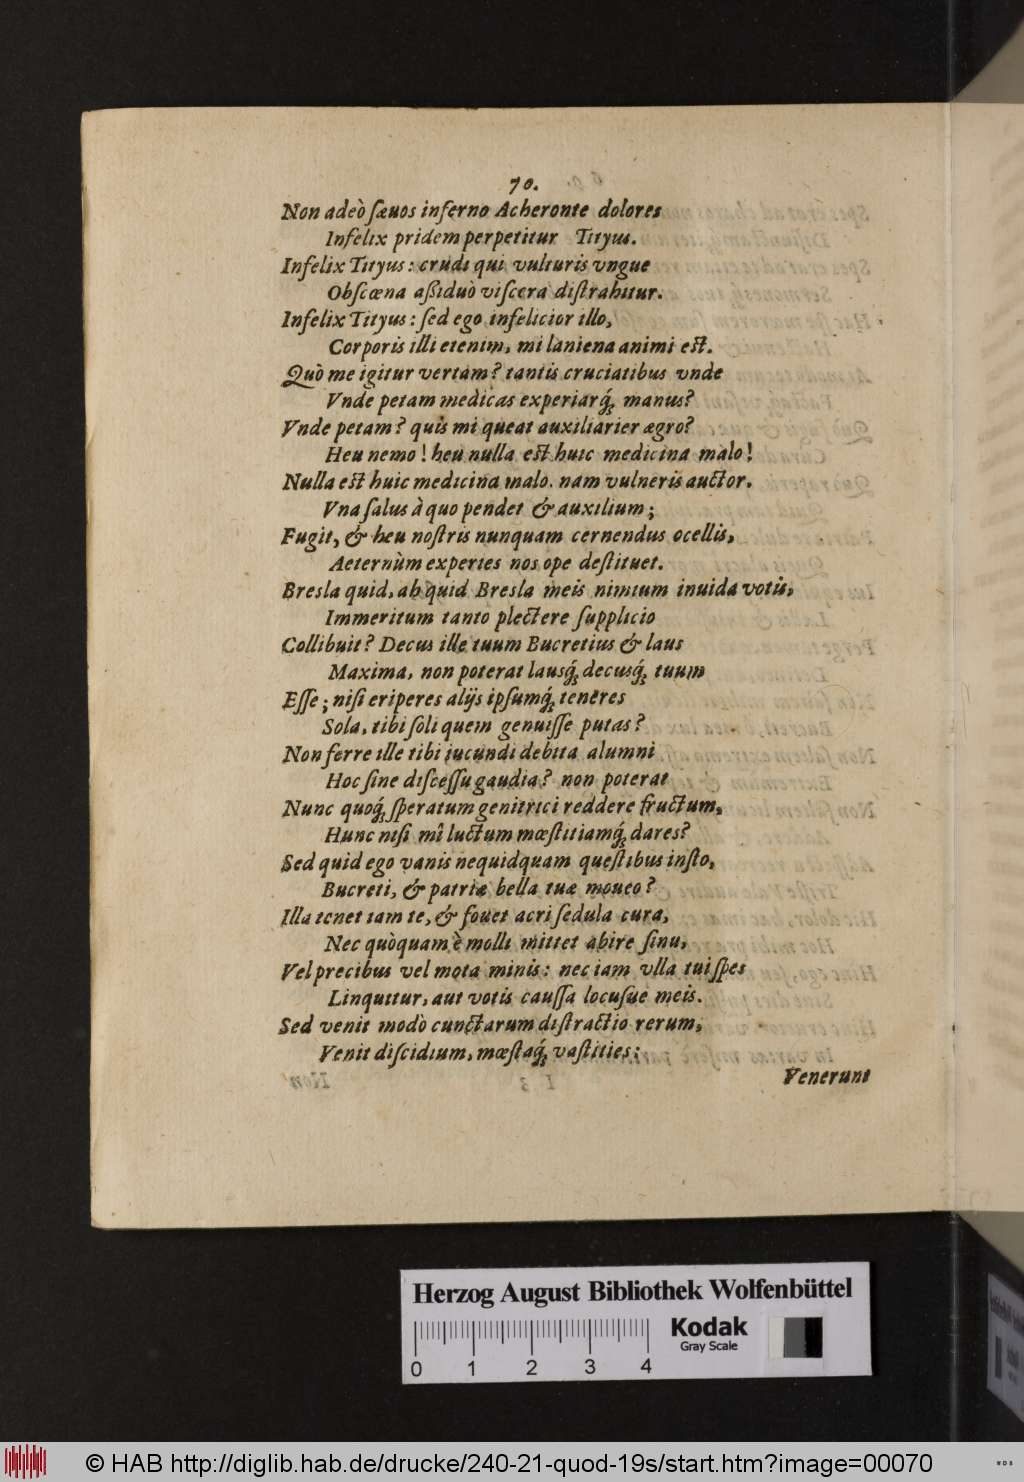 70.
Non adeò sæuos inferno Acheronte dolores
Infelix pridem perpetitur Tityus.
Infelix Tityus: crudi qui vulturis vngue
Obscœna aßiduò viscera distrahitur.
Infelix Tityus: sed ego infelicior illo,
Corporis illi etenim, mi laniena animi est.
Quò me igitur vertam? tantis cruciatibus vnde
Vnde petam medicas experiarq́; manus?
Vnde petam? quis mi queat auxiliarier ægro?
Heu nemo! heu nulla est huic medicina malo!
Nulla est huic medicina malo. nam vulneris auctor.
Vna salus à quo pendet & auxilium;
Fugit, & heu nostris nunquam cernendus ocellis,
Aeternùm expertes nos ope destituet.
Bresla quid, ah quid Bresla meis nimium inuida votis,
Immeritum tanto plectere supplicio
Collibuit? Decus ille tuum Bucretius & laus
Maxima, non poterat lausq́; decusq́; tuum
Esse; nisi eriperes alijs ipsumq́; teneres
Sola, tibi soli quem genuisse putas?
Non ferre ille tibi iucundi debita alumni
Hoc sine discessu gaudia? non poterat
Nunc quoq́; speratum genitrici reddere fructum,
Hunc nisi mî luctum mœstitiamq́; dares?
Sed quid ego vanis nequidquam questibus insto,
Bucreti, & patriæ bella tuæ moueo?
Illa tenet iam te, & fouet acri sedula cura,
Nec quòquam è molli mittet abire sinu,
Vel precibus vel mota minis: nec iam vlla tui spes
Linquitur, aut votis caussa locusue meis.
Sed venit modò cunctarum distractio rerum,
Venit discidium, mœstaq́; vastities:
Venerunt
Herzog August Bibliothek Wolfenbüttel
Kodak
Gray Scale
0 1 2 3 4
© HAB http://diglib.hab.de/drucke/240-21-quod-19s/start.htm?image=00070